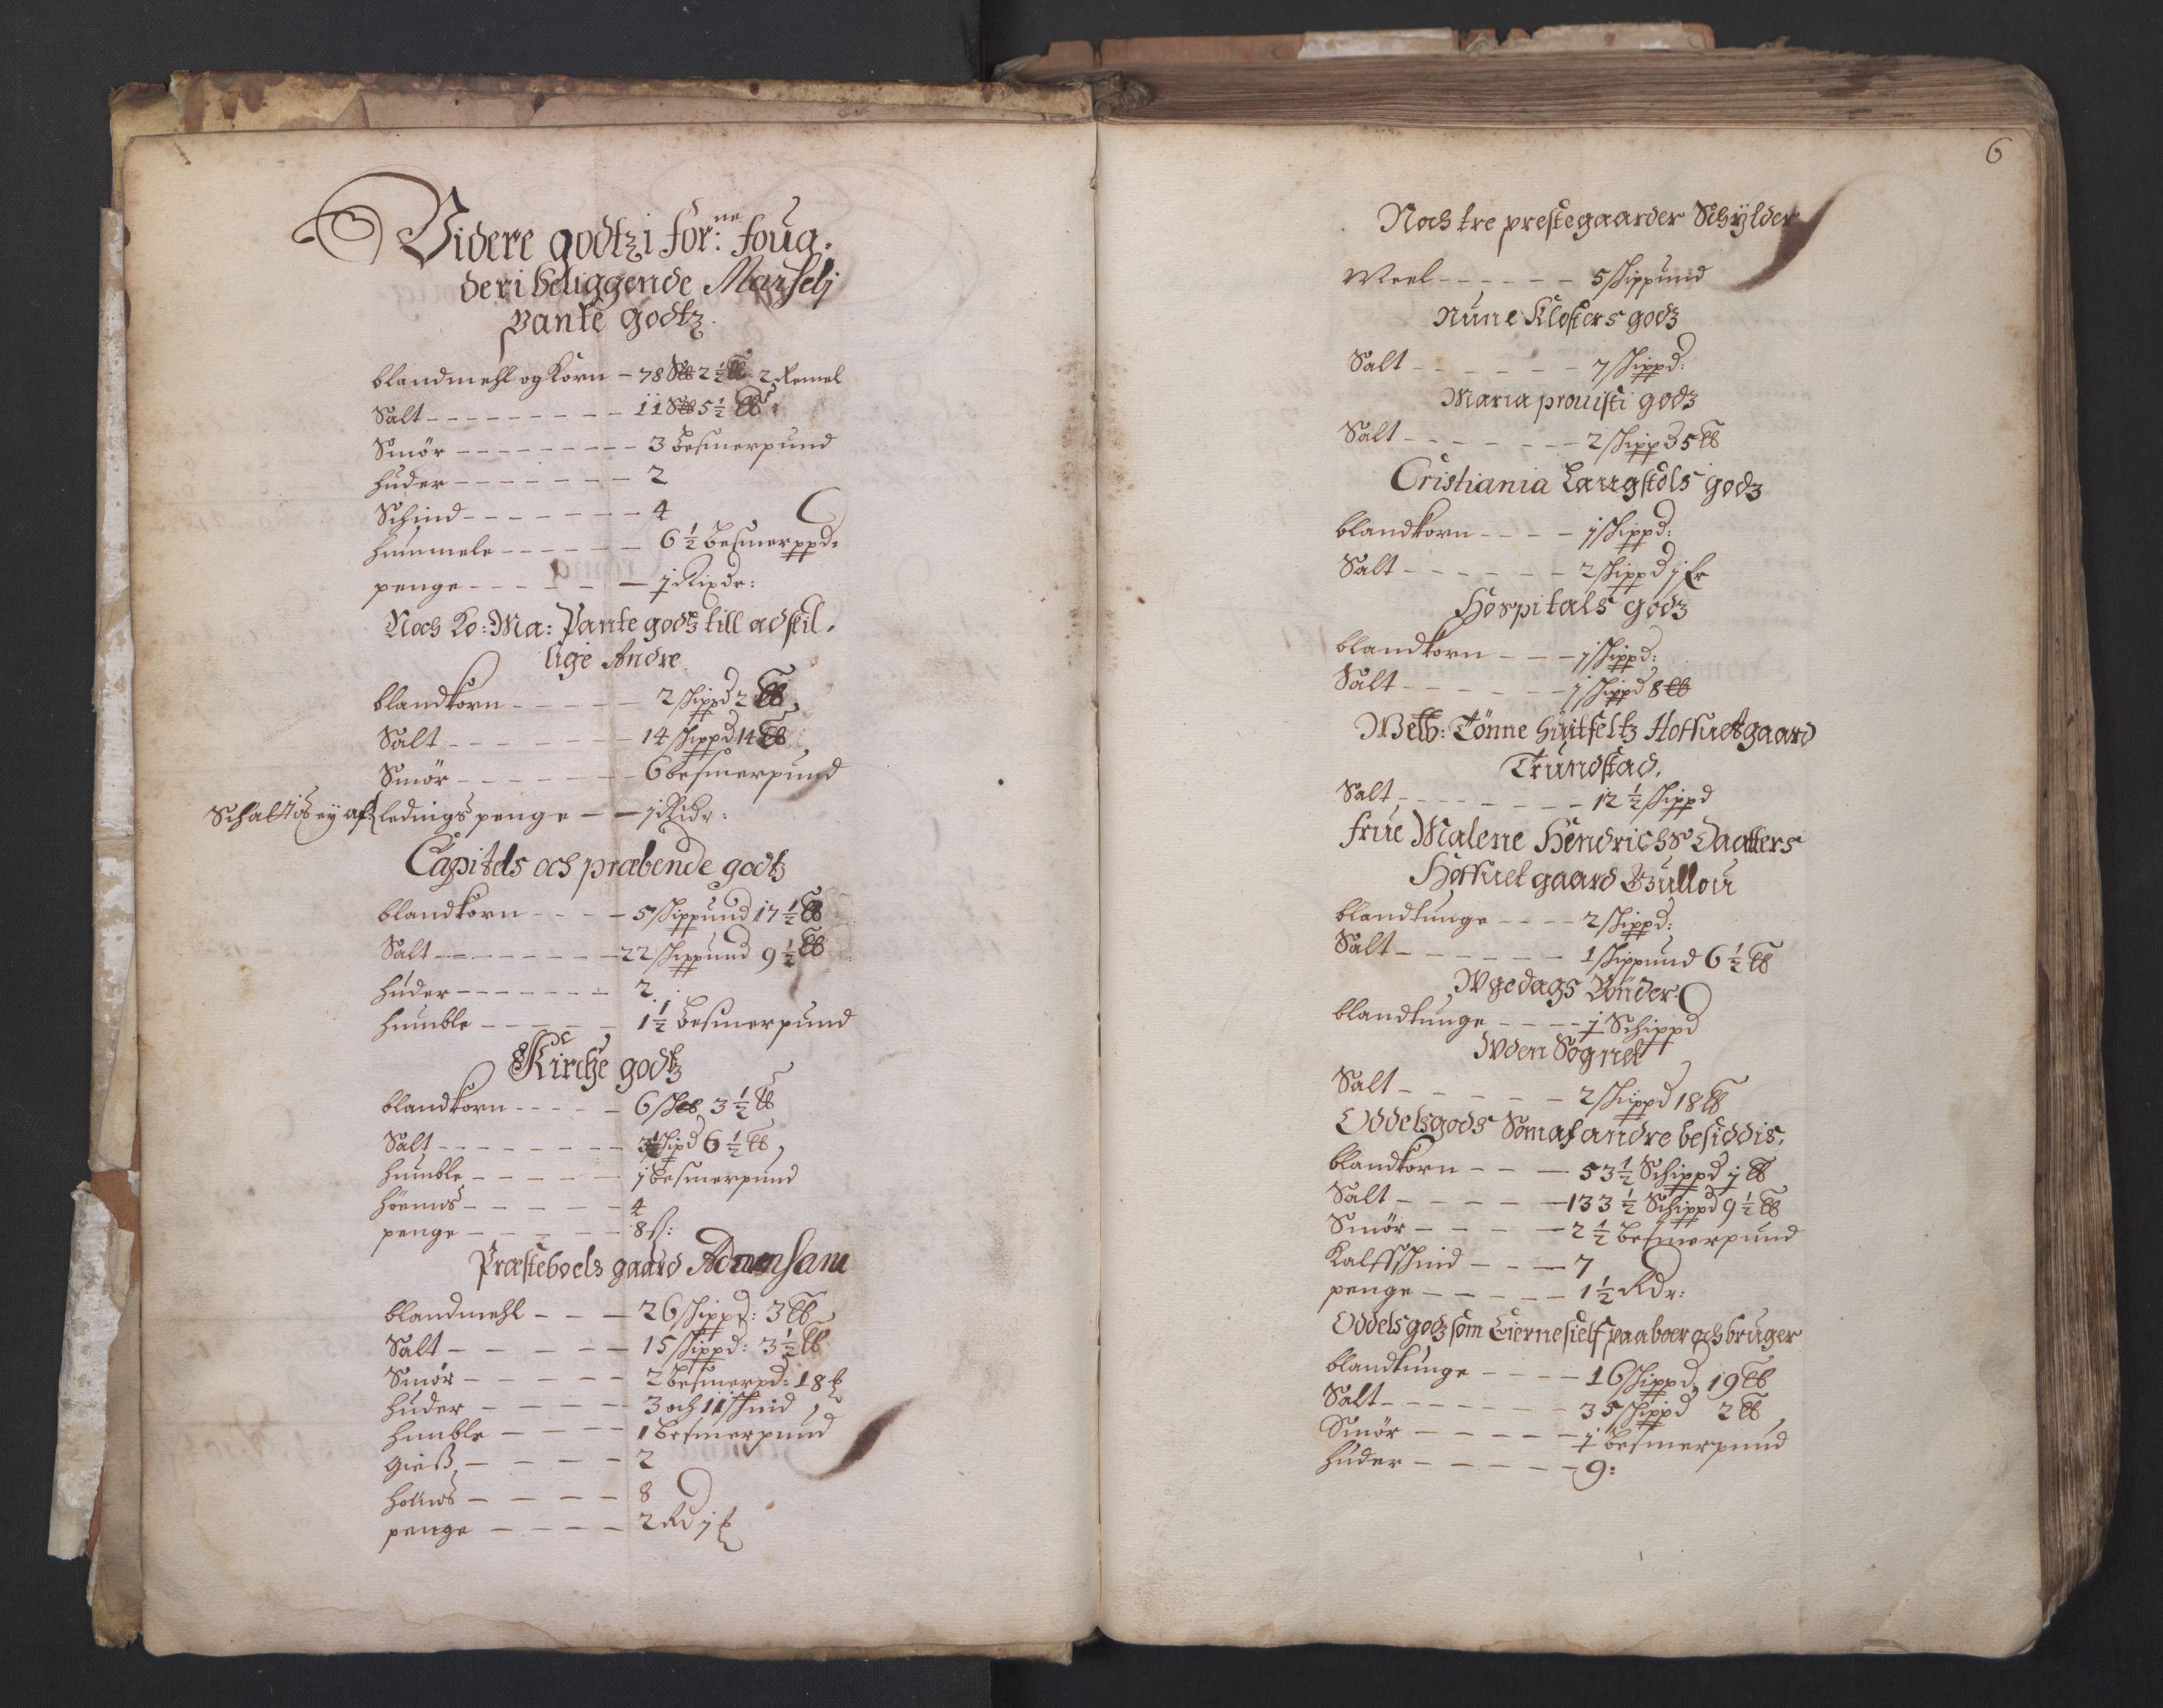 Videre godtz i for:ne foug-
deri beliggende Marselj
Pante godtz.
blandmehl og Korn – 78 S℔ 2½ l℔ 2 Remel
Salt – 11 S℔ 5½ l℔
Smör – 3 besmerpund
huder – 2
Schind – 4
hummele – 6½ besmerppd:
penge – j Rixdr:
Noch Ko: Ma: Pante godz till adskil-
lige Andre.
blandkorn – 2 skippd 2 l℔
Salt – 14 skippd: 14 l℔
Smör – 6 besmerpund
Schattis ey af ledings penge – j Ridr:
Capitels och præbende godtz
blandkorn – 5 skippund 17½ l℔
Salt – 22 skippund 9½ l℔
huder – 2
humble – 1½ besmerpund
Kirche godtz
blandkorn – 6 sk℔ 3½ l℔
Salt – skipd 6½ l℔
humble – j besmerpund
höenns – 4
penge – 8 ß:
Præsteboels gaard
blandmehl – 26 skippd: 3 l℔
Salt – 15 skippd: 3½ l℔
Smör – 2 besmerpd: 18
huder – 3 och 11 skind
humble – 1 besmerpund
Gieß – 2
höns – 8
penge – 2 Rd j
6
Noch tre prestegaarder Schylder
Meel – 5 skippund
Nunne Klosters godz
Salt – 7 skippd:
Maria prouisti godz
Salt – 2 skippd 5 l℔
Cristiania Laugstols godz
blandkorn – j skippd:
Salt – 2 skippd j
Hospitals godz
blandkorn – j skippd:
Salt – j skippd 8 l℔
Welb: Tönne Huitfeltz Hoffuetgaard
Trundstad.
Salt – 12½ skippd
frue Malene Hendrichs Daatters
Hoffuet gaard Bullou
blandtunge – 2 skippd:
Salt – 1 skippund 6½ l℔
Wgedags Bönder
blandtunge – j Schippd
Wden Sognet
Salt – 2 skippd 18 l℔
Oddelsgods Som af andre besiddis.
blandkorn – 53½ Schippd j l℔
Salt – 133½ Schippd 9½ l℔
Smör – 2½ besmerpund
Kalffskind – 7
penge – 1½ Rdr:
Oddelsgodz som Eierne sielf paaboer och bruger
blandtunge – 16 skippd, 19 l℔
Salt – 35 skippd 2 l℔
Smör – j besmerpund
huder – 9: